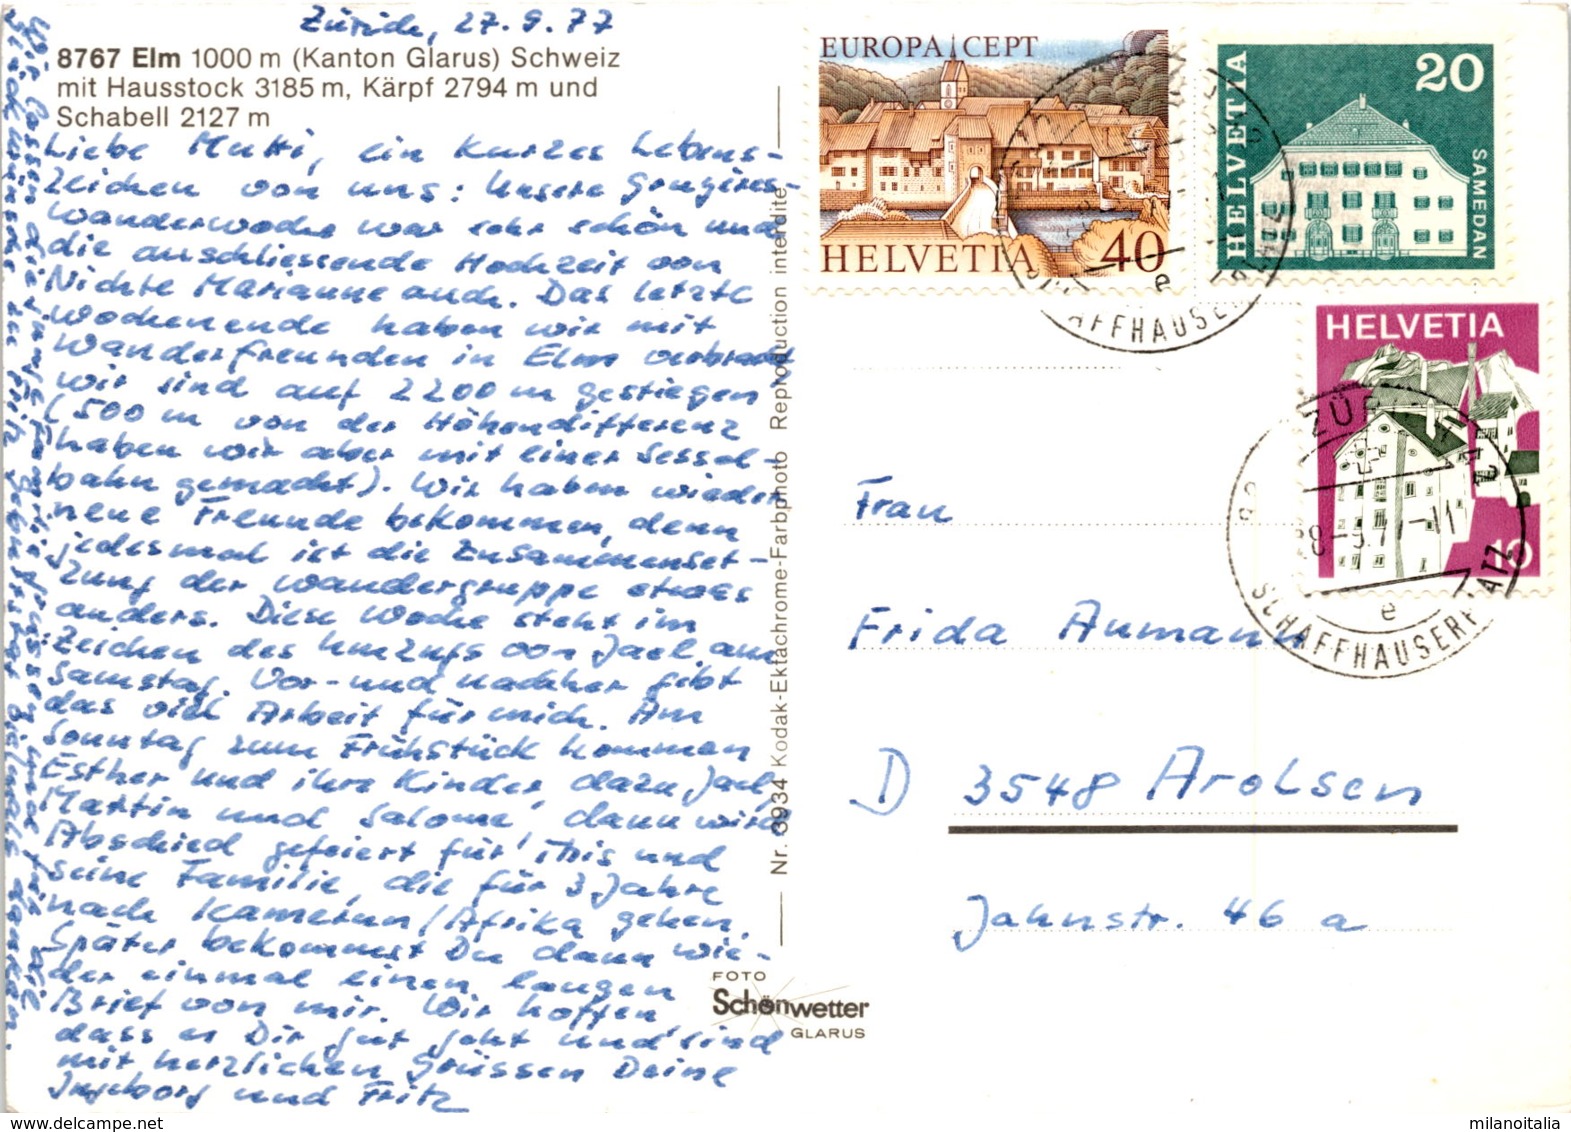 Zürich, 27.9.77
8767 Elm 1000 m (Kanton Glarus) Schweiz
mit Hausstock 3185 m, Kärpf 2794 m und
Schabell 2127 m
Liebe Mutti, ein kurzes Lebens-
zeichen von uns: Unsere Gruyères-
Wanderwoche war sehr schön und
die anschliessende Hochzeit von
Nichte Marianne auch. Das letzte
Wochenende haben wir mit
Wanderfreunden in Elm verbracht
wir sind auf 2200 m gestiegen
(500 m von der Höhendifferenz
haben wir aber mit einer Sessel-
bahn gemacht). Wir haben wieder
neue Freunde bekommen, denn
jedesmal ist die Zusammenset-
zung der Wandergruppe etwas
anders. Diese Woche steht im
Zeichen des Umzugs von Jael am
Samstag. Vor- und nachher gibt
das viel Arbeit für mich. Am
Sonntag zum Frühstück kommen
Esther und ihre Kinder, dazu Jael,
Martin und Salome, dann wird
Abschied gefeiert für This und
seine Familie, die für 3 Jahre
nach Kamerun/Afrika gehen.
Später bekommst Du dann wie-
der einmal einen langen
Brief von mir. Wir hoffen
dass es Dir gut geht und sind
mit herzlichen Grüssen Deine
Ingeborg und Fritz
Nr. 3934 Kodak-Ektachrome-Farbphoto Reproduction interdite
FOTO
Schönwetter
GLARUS
EUROPA CEPT
HELVETIA 40
HELVETIA
20
SAMEDAN
HELVETIA
10
ZÜRICH
SCHAFFHAUSERPLATZ
e
Frau
Frida Aumann
D 3548 Arolsen
Jahnstr. 46 a
milanoitalia